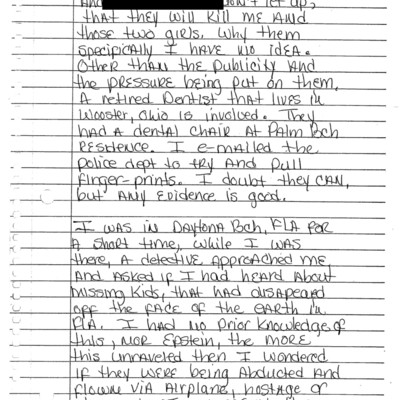 And DON'T let up,
that they will kill me and
those two girls. Why them
specifically I have no idea.
Other than the publicity and
the pressure being put on them.
A retired Dentist that lives in
Wooster, Ohio is involved. They
had a dental chair at Palm Bch
residence. I e-mailed the
police dept to try and pull
finger-prints. I doubt they can,
but any evidence is good.
I was in Daytona Bch, FLA for
a short time, while I was
there, a detective approached me
and asked if I had heard about
missing kids, that had disapeared
off the face of the earth in
FLA. I had no prior knowledge of
this, nor Epstein, the more
this unraveled then I wondered
if they were being abducted and
flown via airplane, hostage or